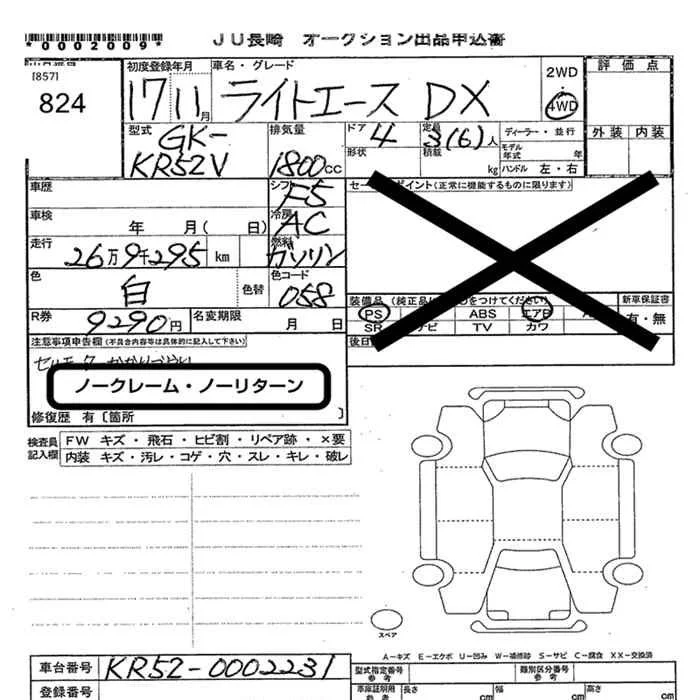 *0002009*
JU長崎 オークション出品申込書
[857]
824
初度登録年月
17 11月
車名・グレード
ライトエース DX
2WD
4WD
評価点
外装 内装
型式
GK-
KR52V
排気量
1800cc
ドア 4
形状
定員 3(6)人
積載 kg
ディーラー・並行
モデル年式 年
ハンドル 左・右
車歴
シフト F5
セールスポイント(正常に機能するものに限ります)
車検 年 月( 日)
冷房 AC
走行 26万9千295 km
燃料 ガソリン
色 白 色替
色コード 058
装備品(純正品に○をつけてください)
新車保証書
有・無
PS ABS エアB
SR ナビ TV カワ
R券 9290円
名変期限 月 日
後日
注意事項申告欄(不具合内容等は具体的に記入して下さい)
ノークレーム・ノーリターン
修復歴 有〔箇所 〕
検査員記入欄
FW キズ・飛石・ヒビ割・リペア跡・×要
内装 キズ・汚レ・コゲ・穴・スレ・キレ・破レ
スペア
A-キズ E-エクボ U-凹み W-補修跡 S-サビ C-腐食 XX-交換済
車台番号 KR52-0002231
登録番号
型式指定番号 参考
類別区分番号 参考
車庫証明用 参考
長さ cm
幅 cm
高さ cm